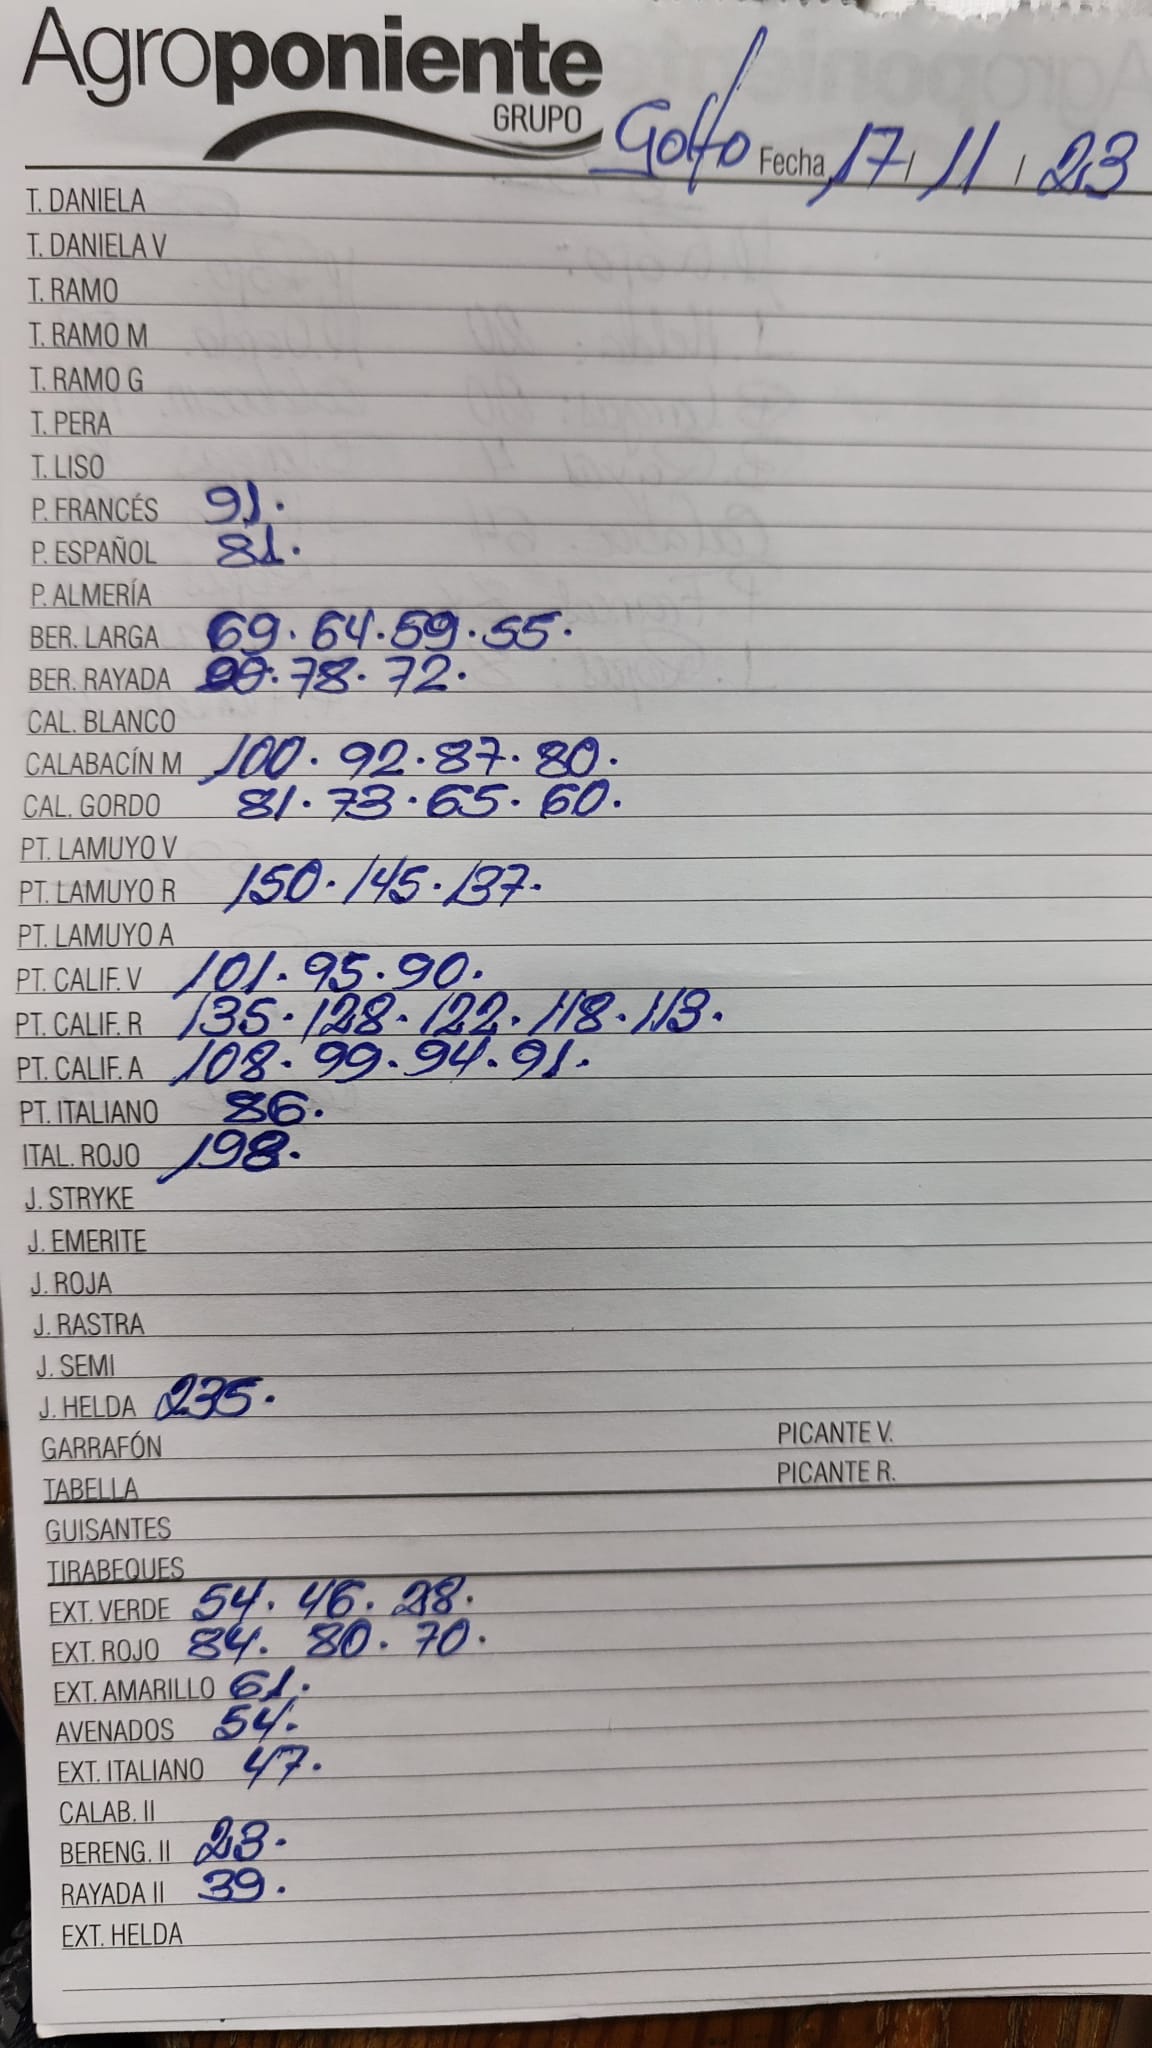 Agroponiente
GRUPO
Golfo Fecha 17 / 11 / 23
T. DANIELA
T. DANIELA V
T. RAMO
T. RAMO M
T. RAMO G
T. PERA
T. LISO
P. FRANCÉS 91.
P. ESPAÑOL 81.
P. ALMERÍA
BER. LARGA 69. 64. 59. 55.
BER. RAYADA 78. 72.
CAL. BLANCO
CALABACÍN M 100. 92. 87. 80.
CAL. GORDO 81. 73. 65. 60.
PT. LAMUYO V
PT. LAMUYO R 150. 145. 137.
PT. LAMUYO A
PT. CALIF. V 101. 95. 90.
PT. CALIF. R 135. 128. 122. 118. 113.
PT. CALIF. A 108. 99. 94. 91.
PT. ITALIANO 86.
ITAL. ROJO 198.
J. STRYKE
J. EMERITE
J. ROJA
J. RASTRA
J. SEMI
J. HELDA 235.
GARRAFÓN PICANTE V.
TABELLA PICANTE R.
GUISANTES
TIRABEQUES
EXT. VERDE 54. 46. 28.
EXT. ROJO 84. 80. 70.
EXT. AMARILLO 61.
AVENADOS 54.
EXT. ITALIANO 47.
CALAB. II
BERENG. II 23.
RAYADA II 39.
EXT. HELDA